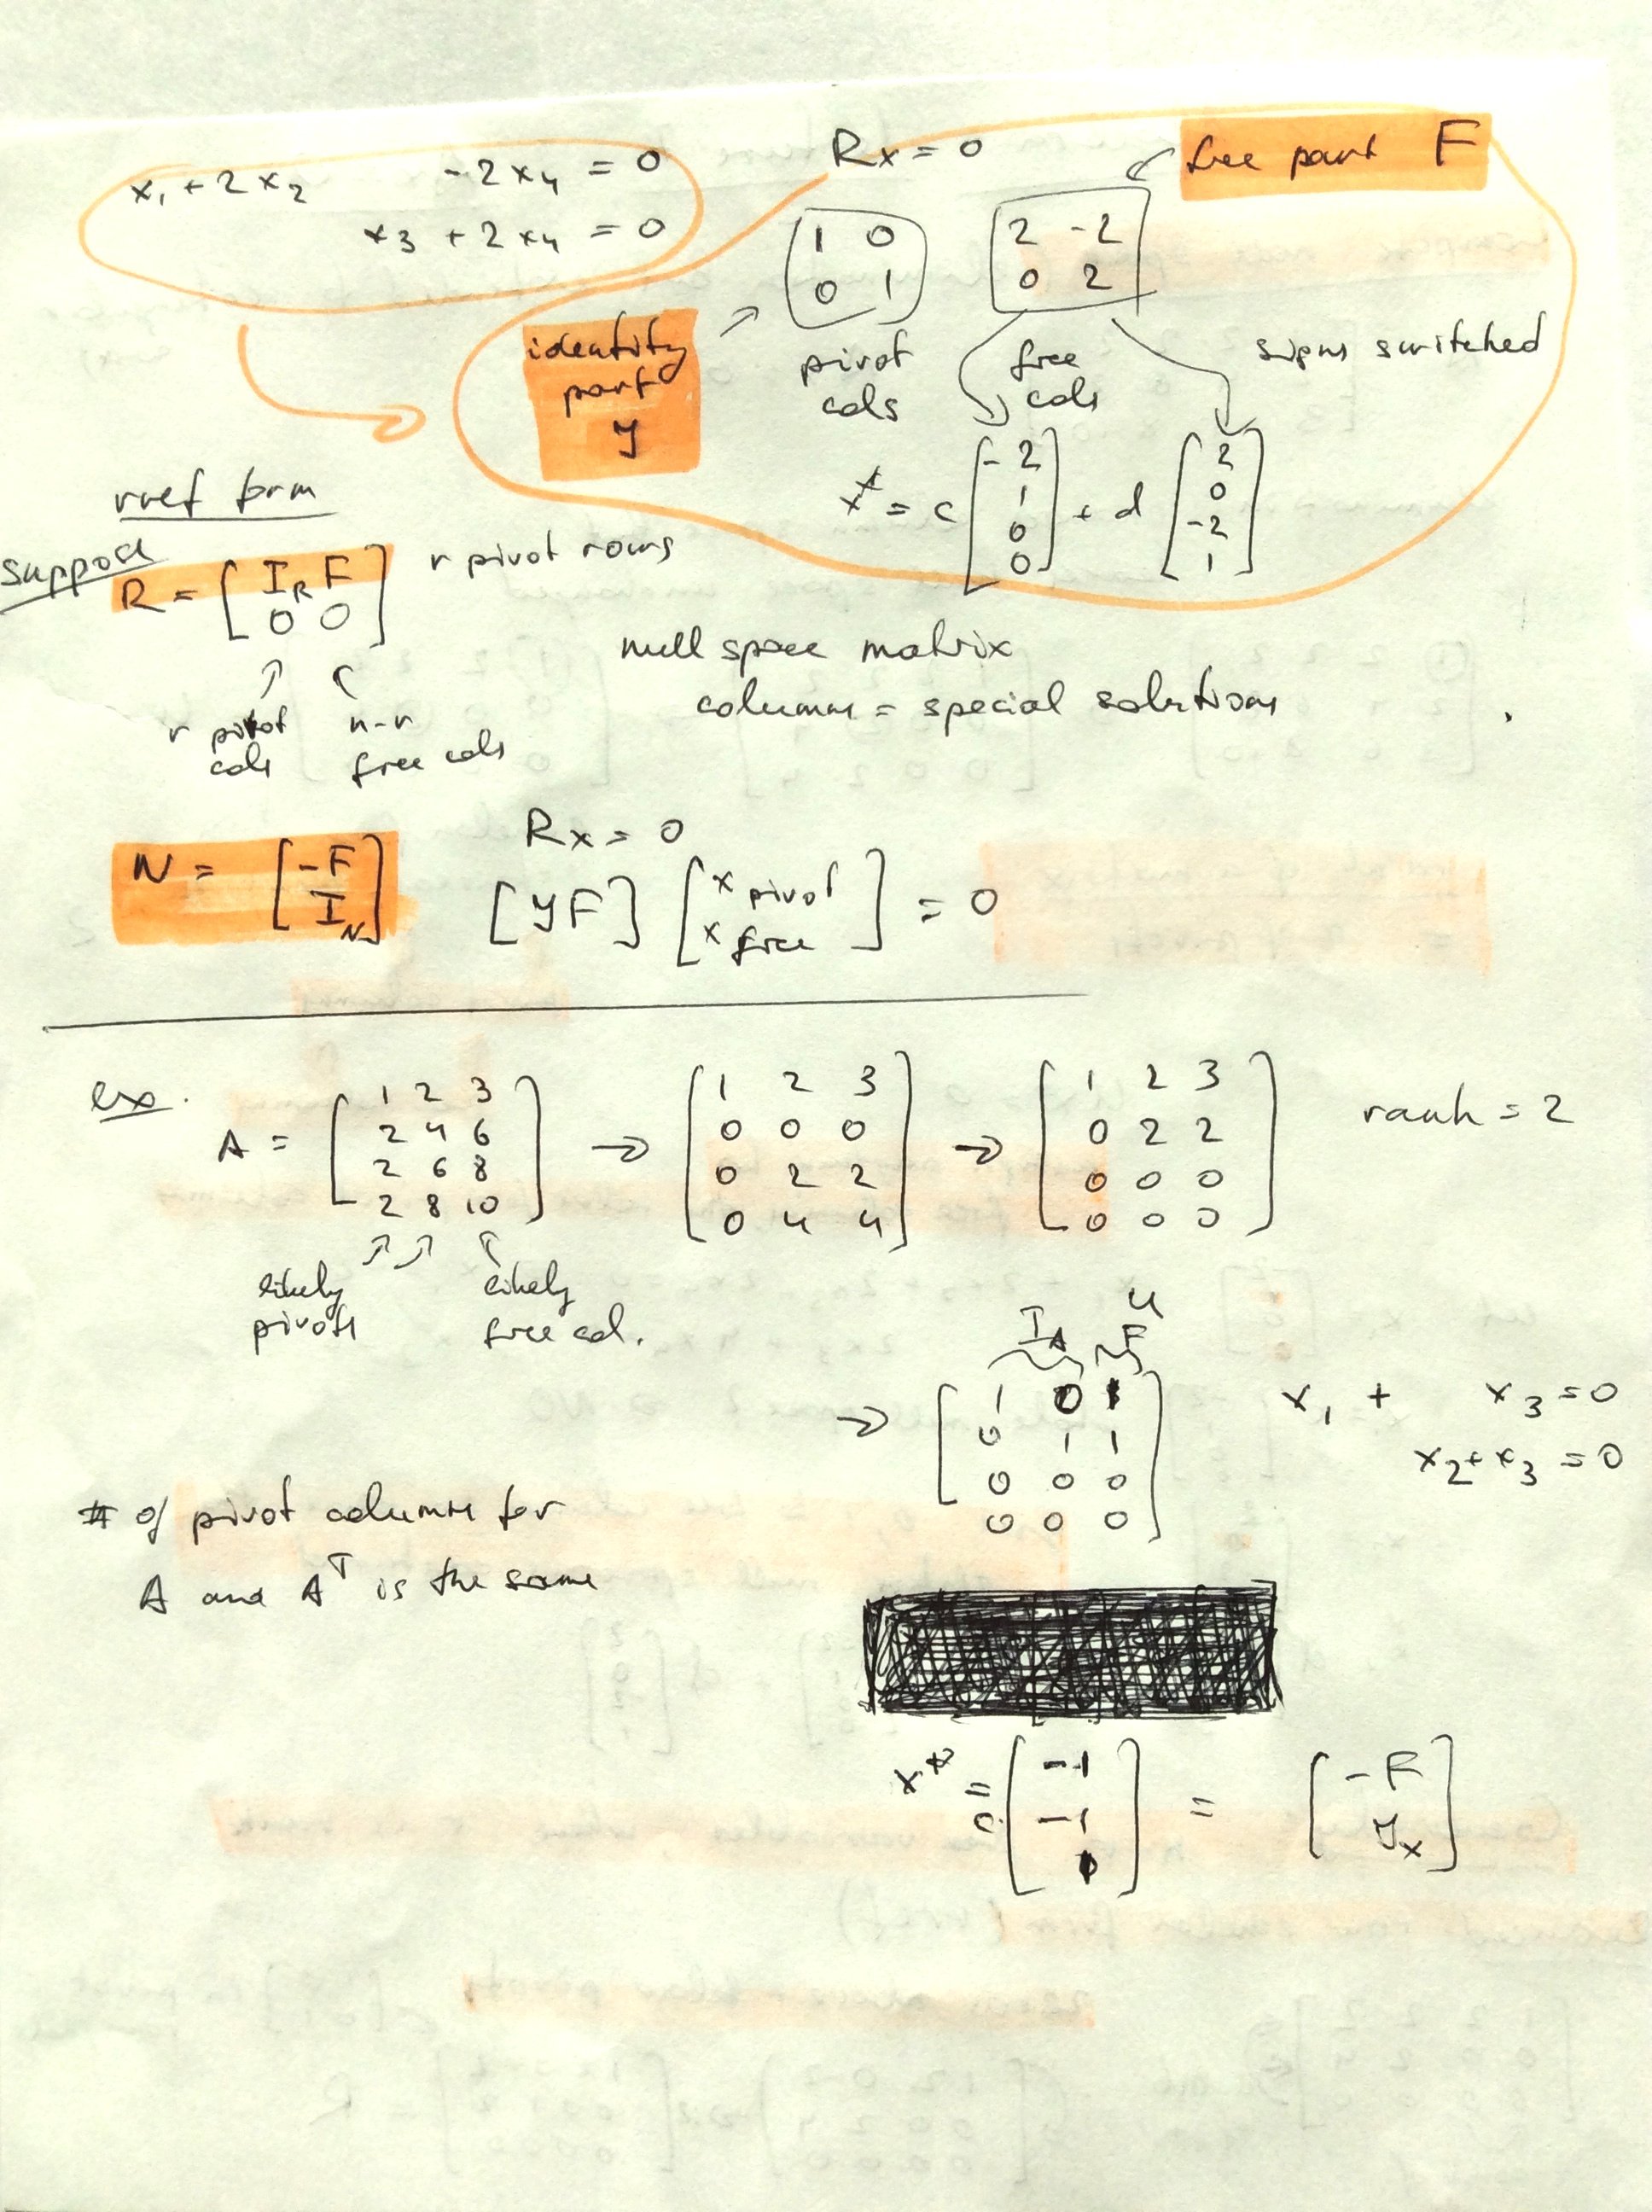 x₁ + 2x₂ - 2x₄ = 0
x₃ + 2x₄ = 0
Rx = 0
free part F
1 0
0 1
2 -2
0 2
identity
part
I
pivot
cols
free
cols
signs switched
x* = c [-2 1 0 0] + d [2 0 -2 1]
rref form
suppose
R = [I_R F
0 0]
r pivot rows
r pivot
cols
n-r
free cols
null space matrix
columns = special solutions
N = [-F
I_N]
Rx = 0
[I F] [x pivot
x free] = 0
ex.
A = [1 2 3
2 4 6
2 6 8
2 8 10]
→ [1 2 3
0 0 0
0 2 2
0 4 4]
→ [1 2 3
0 2 2
0 0 0
0 0 0]
rank = 2
likely
pivots
likely
free col.
I F
→ [1 0 1
0 1 1
0 0 0
0 0 0]
x₁ + x₃ = 0
x₂ + x₃ = 0
# of pivot columns for
A and Aᵀ is the same
x* = c [-1
-1
1] = [-F
I]